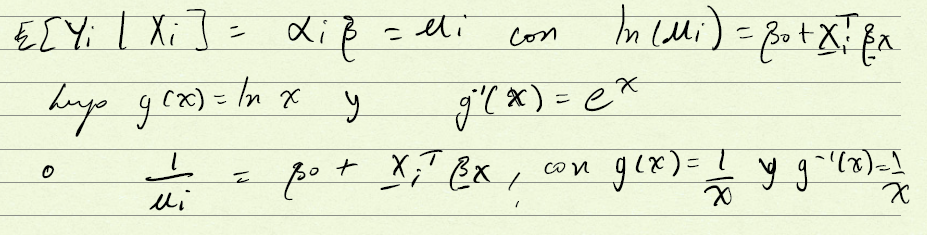 E[Yi | Xi] = αiβ = μi con ln(μi) = β0 + Xi^T βx
luego g(x) = ln x y g^-1(x) = e^x
o 1/μi = β0 + Xi^T βx, con g(x) = 1/x y g^-1(x) = 1/x